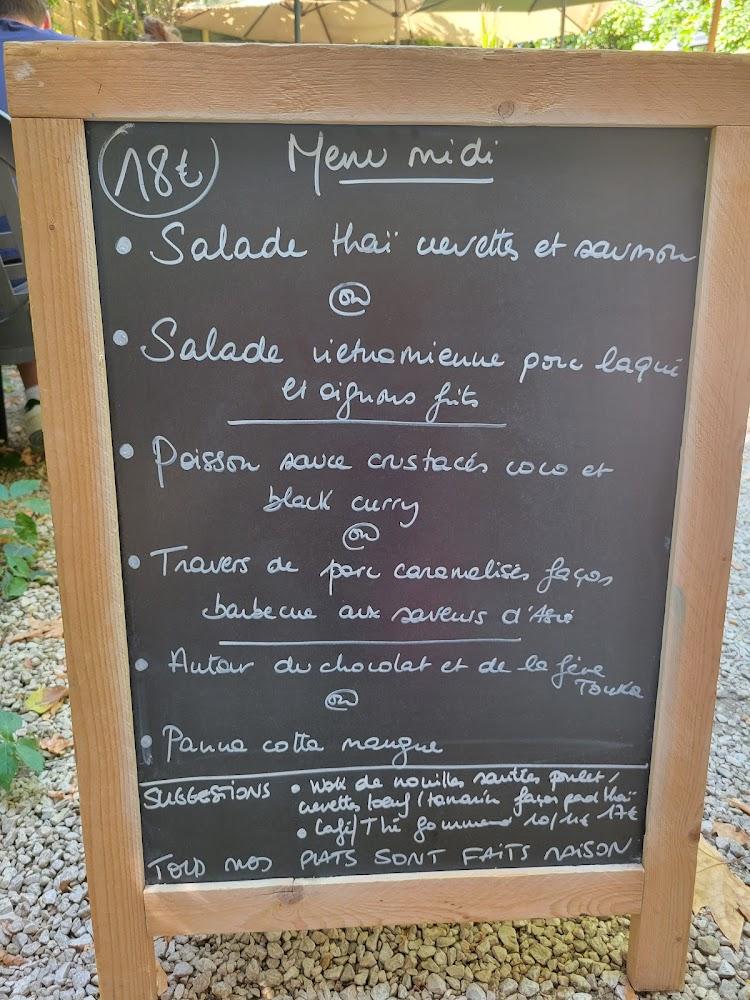 18€ Menu midi
• Salade thaï crevettes et saumon
ou
• Salade vietnamienne porc laqué
et oignons frits
• Poisson sauce crustacés coco et
black curry
ou
• Travers de porc caramelisés façon
barbecue aux saveurs d'Asie
• Autour du chocolat et de la fève
Tonka
ou
• Panna cotta mangue
SUGGESTIONS • Wok de nouilles sautées poulet/
crevettes boeuf/tamarin façon pad thaï
17€
• Café/Thé gourmand 10/11€
TOUS NOS PLATS SONT FAITS MAISON